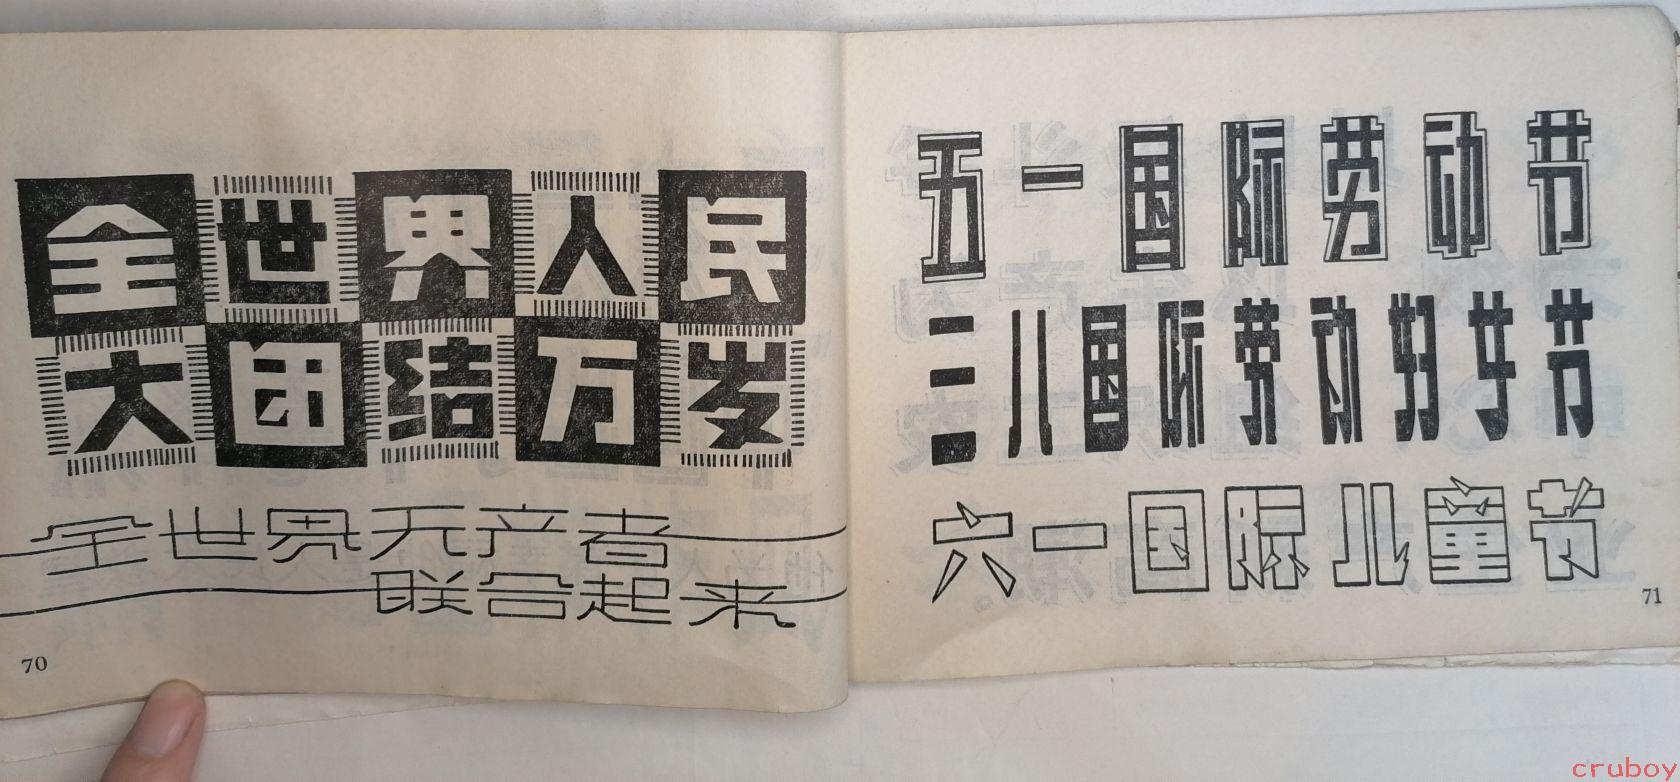 全世界人民
大团结万岁
全世界无产者
联合起来
70
五一国际劳动节
三八国际劳动妇女节
六一国际儿童节
71
cruboy